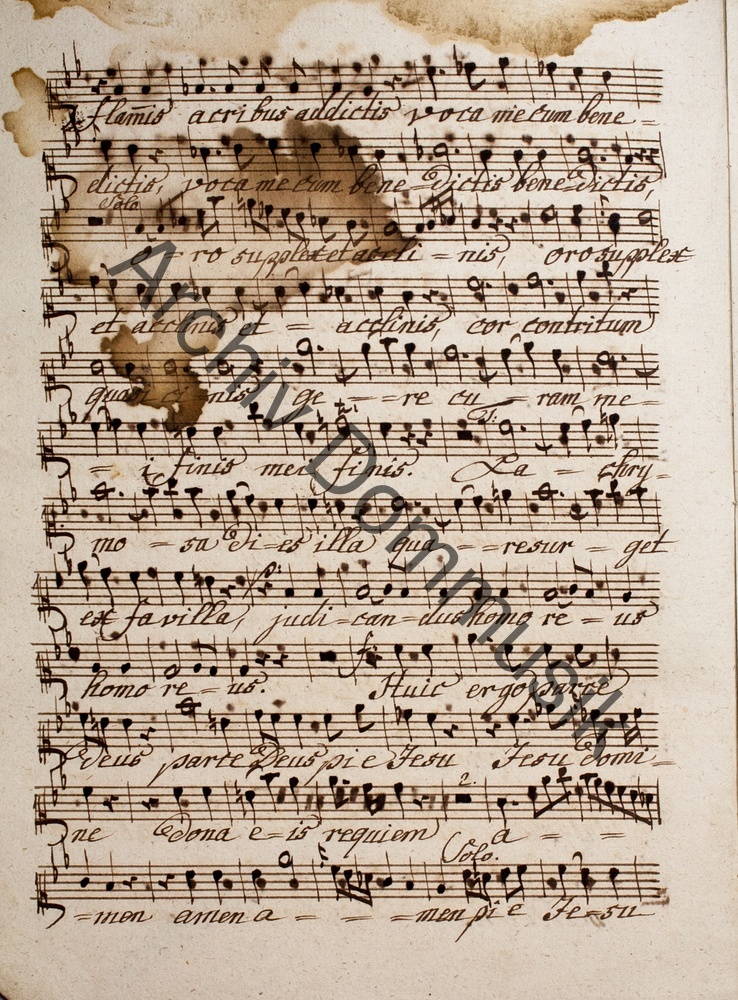 flam̄is acribus addictis voca mecum bene=
dictis, voca mecum bene=dictis bene=dictis,
Solo
o=ro supplex et accli=nis, oro supplex
et acclinis et = acclinis, cor contritum
quasi cinis ge==re cu=ram me=
=i finis mei finis. La=chry=
mo=sa di=es illa qua==resur=get
ex favilla, judi=can=dus homo re=us
homo re=us. Huic ergo parce
Deus parce Deus pie Jesu Jesu domi=
ne dona e=is requiem a==
Solo.
=men amen a===men pi e Je=su
Archiv Dommusik